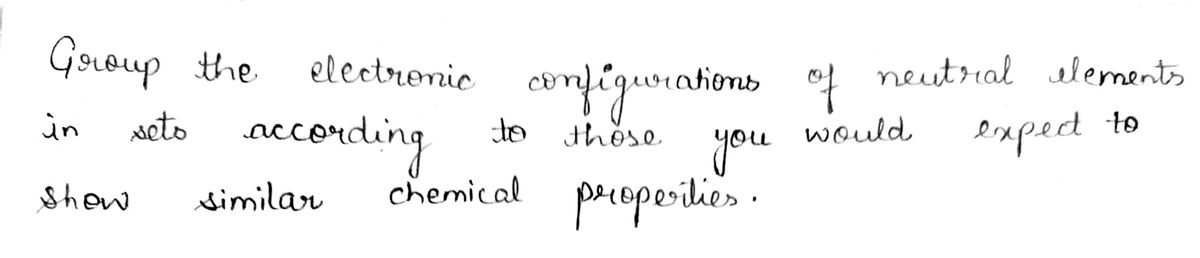 Group the electronic configurations of neutral elements
in sets according to those you would expect to
show similar chemical properties.